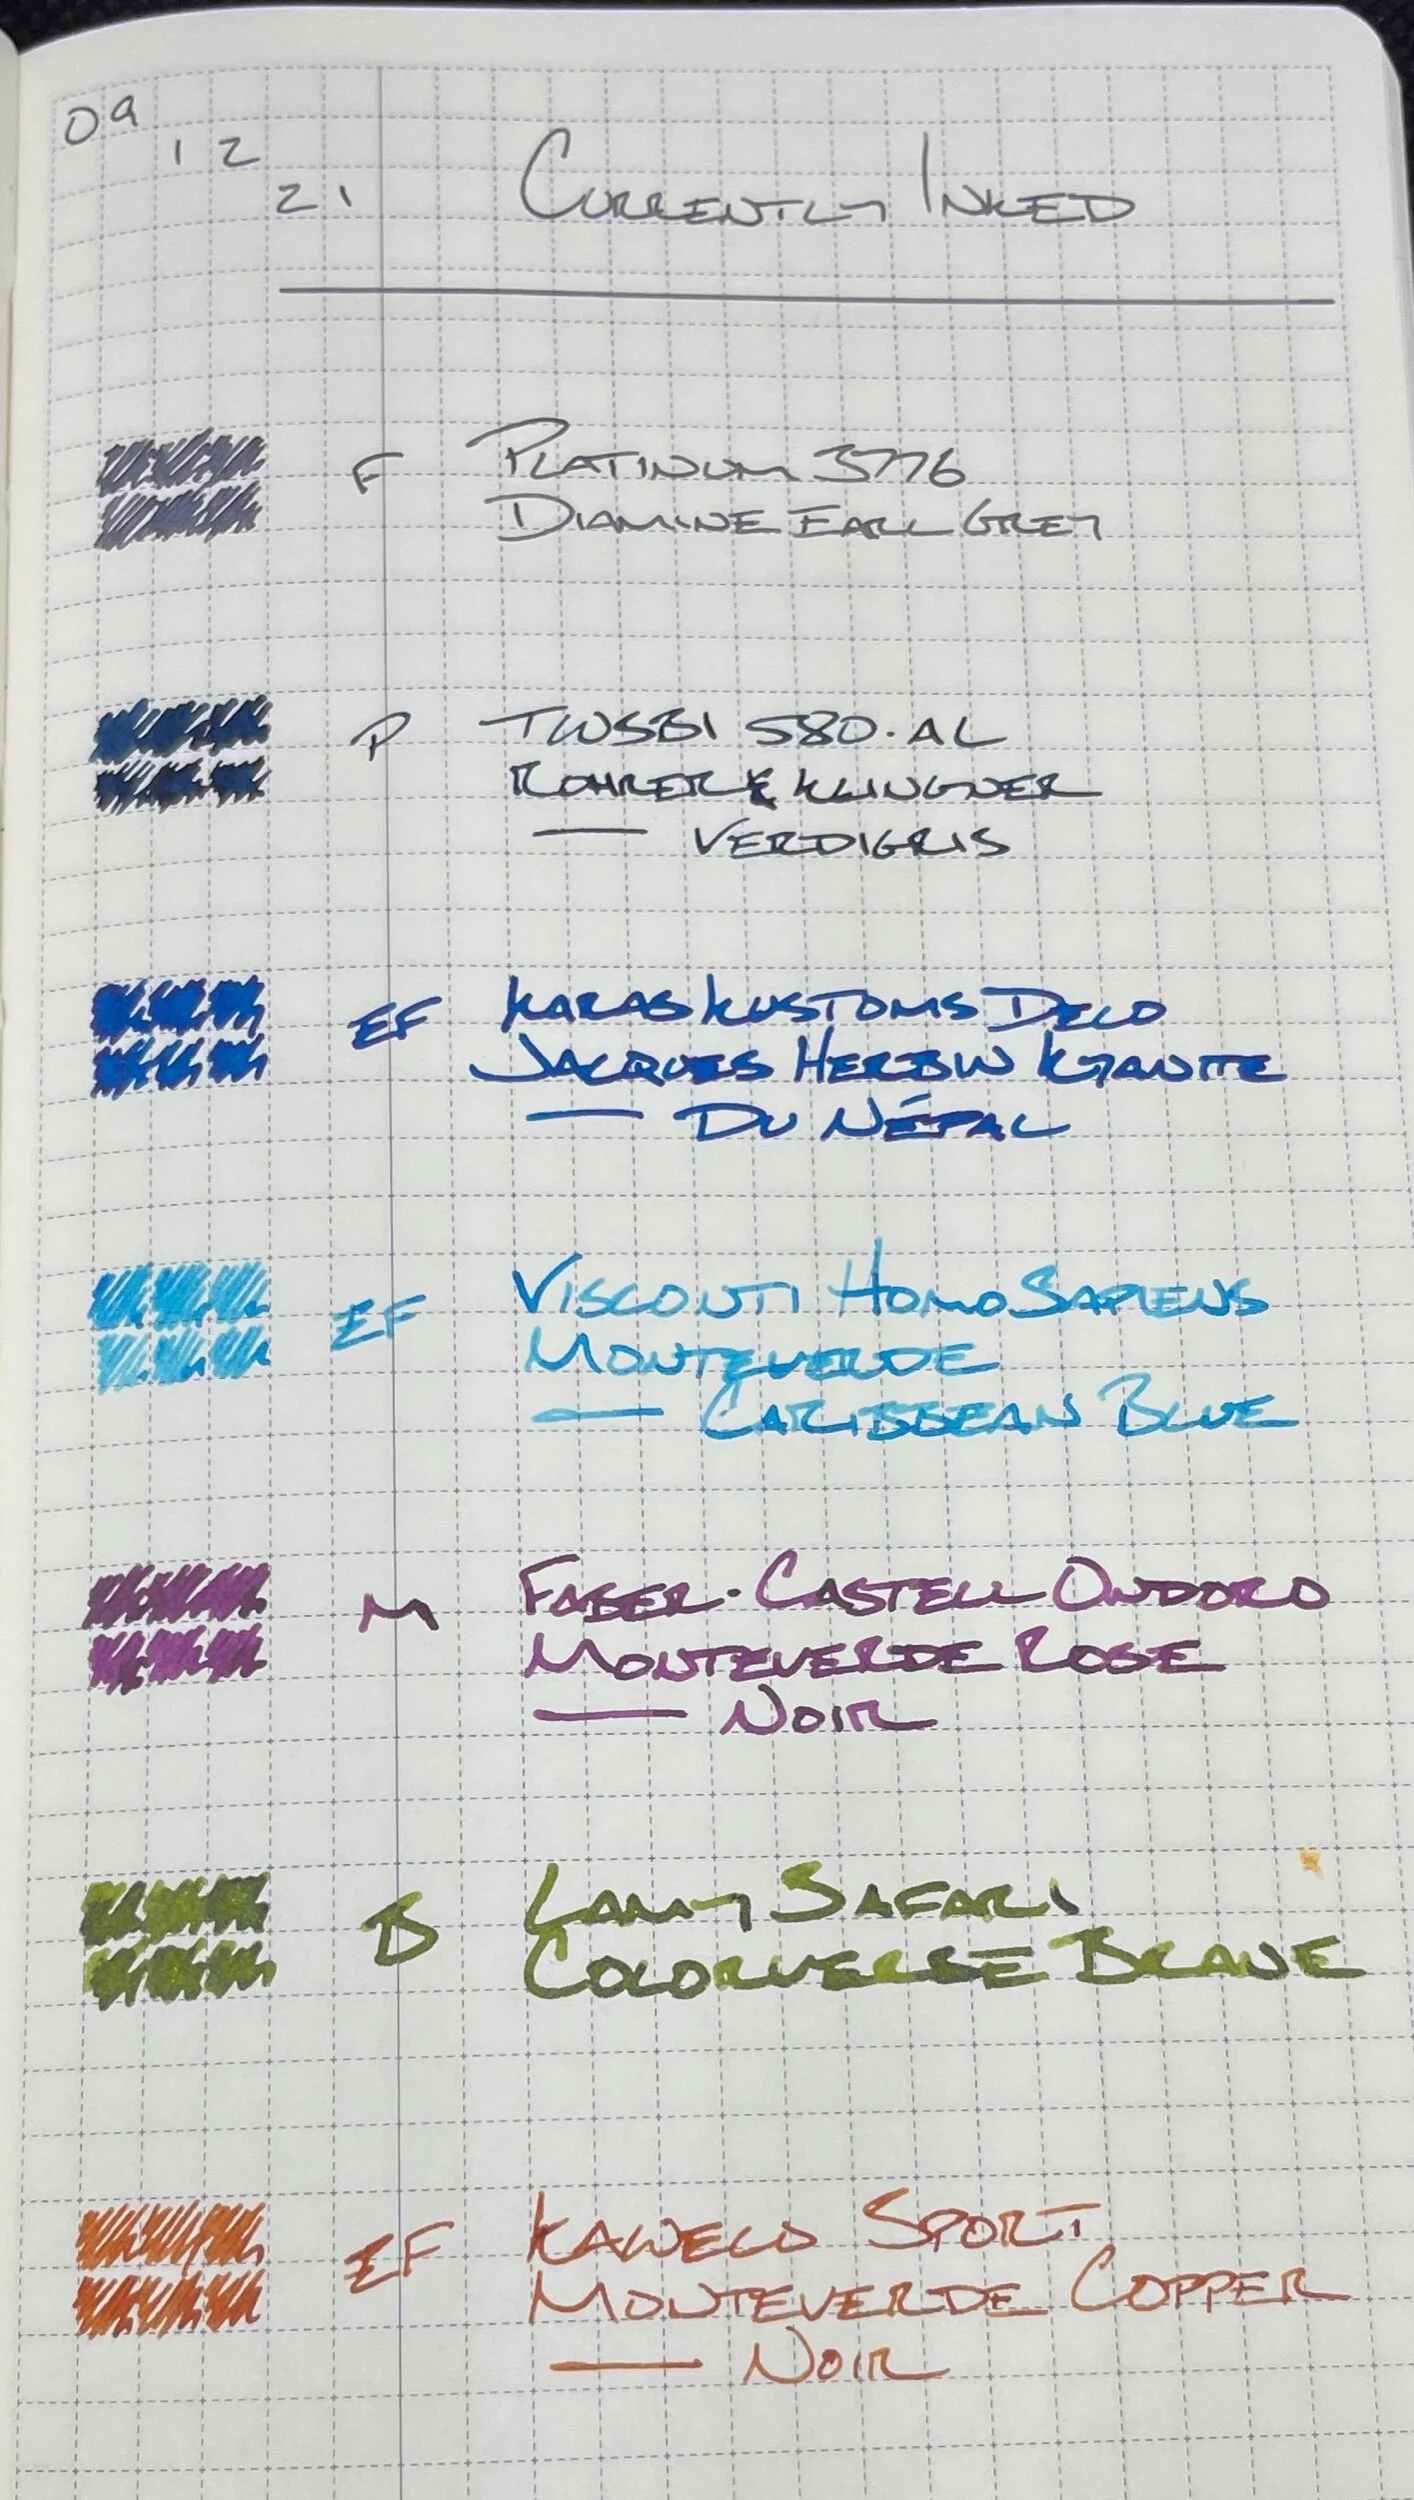 09
12
21
CURRENTLY INKED
F PLATINUM 3776
DIAMINE EARL GREY
P TWSBI 580·AL
ROHRER & KLINGNER
— VERDIGRIS
EF KARAS KUSTOMS DECO
JACQUES HERBIN KYANITE
— DU NÉPAL
EF VISCONTI HOMO SAPIENS
MONTEVERDE
— CARIBBEAN BLUE
M FABER·CASTELL ONDORO
MONTEVERDE ROSE
— NOIR
B LAMY SAFARI
COLORVERSE BRANE
EF KAWECO SPORT
MONTEVERDE COPPER
— NOIR